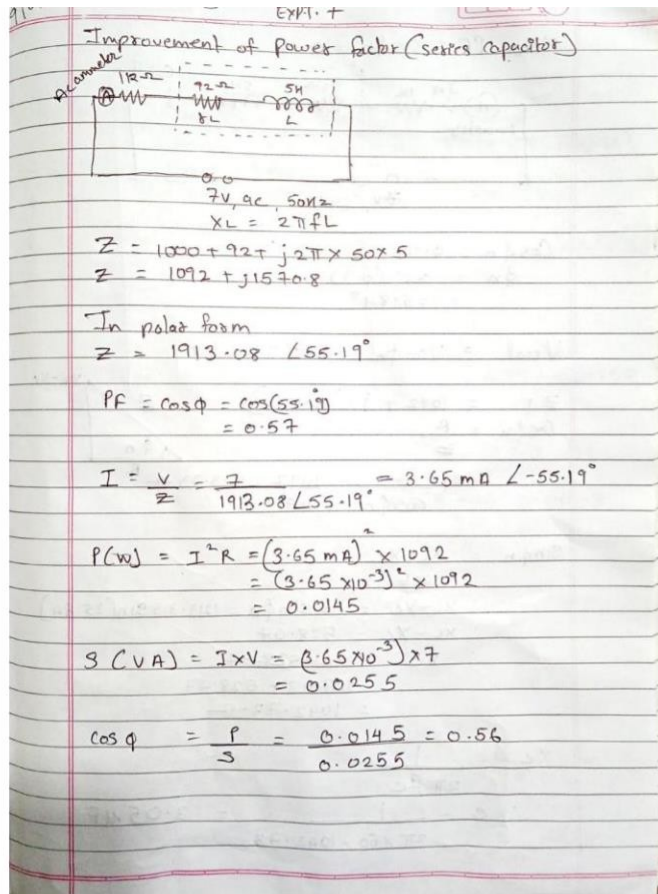 Expt. 7
Improvement of Power factor (series capacitor)
Ac ammeter
A 1kΩ 92Ω 5H
rL L
7V, ac, 50Hz
XL = 2πfL
Z = 1000 + 92 + j2π × 50 × 5
Z = 1092 + j1570.8
In polar form
Z = 1913.08 ∠55.19°
PF = cosφ = cos(55.19°)
= 0.57
I = V/Z = 7/1913.08∠55.19° = 3.65 mA ∠-55.19°
P(W) = I²R = (3.65 mA)² × 1092
= (3.65 × 10⁻³)² × 1092
= 0.0145
S (VA) = I×V = (3.65 × 10⁻³) × 7
= 0.0255
cosφ = P/S = 0.0145/0.0255 = 0.56